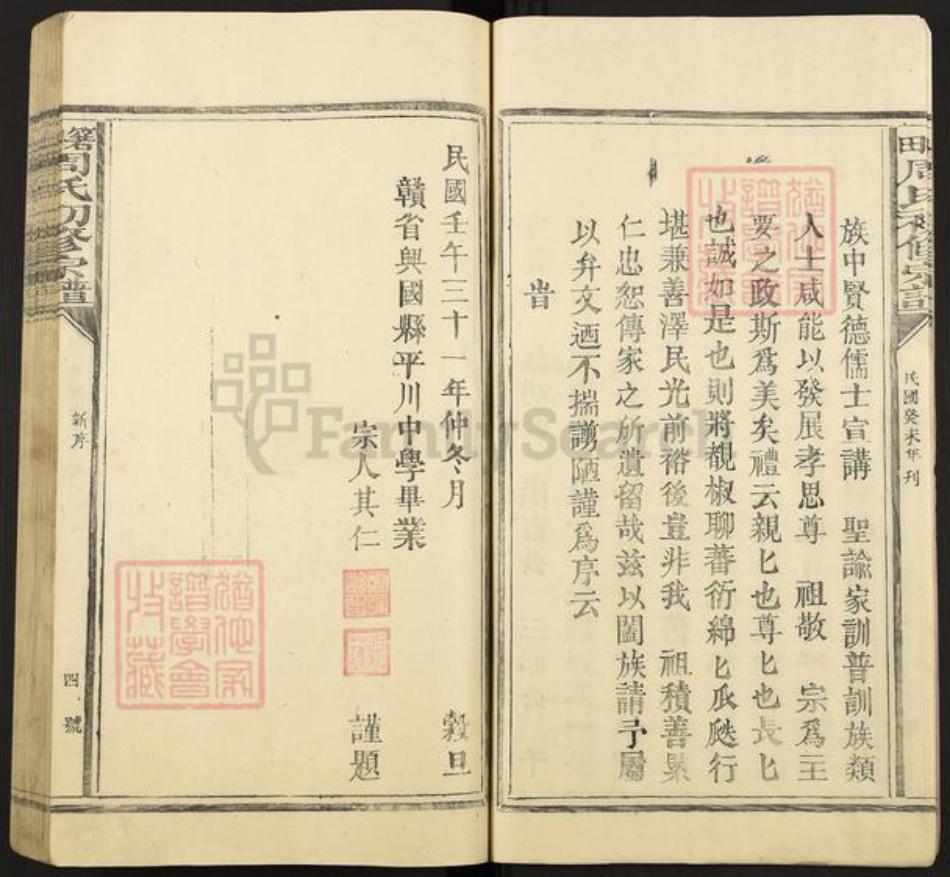 族中賢德儒士宣講　聖諭家訓普訓族類
人士咸能以發展孝思尊　祖敬　宗爲主
要之政斯爲美矣禮云親匕也尊匕也長匕
也誠如是也則將覩椒聊蕃衍綿匕瓜瓞行
堪兼善澤民光前裕後豈非我　祖積善累
仁忠恕傳家之所遺留哉兹以闔族請予屬
以弁文迺不揣譾陋謹爲序云
旹
民國癸未年刊
民國壬午三十一年仲冬月　穀旦
贛省興國縣平川中學畢業
宗人其仁　謹題
周氏初修宗譜
新序
四號
猶他家
譜學會
收藏
FamilySearch